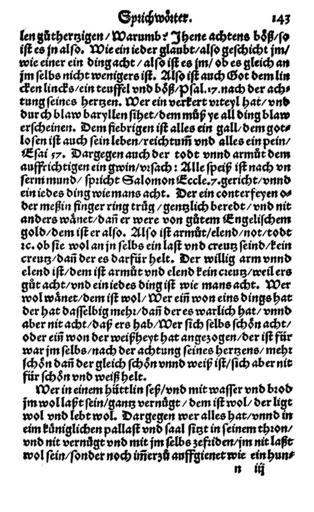 Sprichwörter. 143
len gůthertzigen/ Warumb? Jhene achtens böß/ so
ist es jn also. Wie ein ieder glaubt/ also geschicht jm/
wie einer ein ding acht/ also ist es jm/ ob es gleich an
jm selbs nicht wenigers ist. Also ist auch Gott dem lin
cken lincks/ ein teuffel vnd böß/ Psal.17. nach der ach-
tung seines hertzen. Wer ein verkert vrteyl hat/ vnd
durch blaw baryllen sihet/ dem můß ye all ding blaw
erscheinen. Dem fiebrigen ist alles ein gall/ dem got-
losen ist auch sein leben/ reichtum̃ vnd alles ein pein/
Esai 57. Dargegen auch der todt vnnd armůt dem
auffrichtigen ein gwin/ vrsach: Alle speiß ist nach vn
serm mund/ spricht Salomon Eccle.7. gericht/ vnnd
ein iedes ding wie mans acht. Der ein conterfeyen o-
der meßin finger ring trůg/ gentzlich beredt/ vnd nit
anders wånet/ dañ er were von gůtem Engelischem
gold/ dem ist er also. Also ist armůt/ elend/ not/ todt
ꝛc. ob sie wol an jn selbs ein last vnd creutz seind/ kein
creutz/ dañ der es darfür helt. Der willig arm vnnd
elend ist/ dem ist armůt vnd elend kein creutz/ weil ers
gůt acht/ vnd ein iedes ding ist wie mans acht. Wer
wol wånet/ dem ist wol/ Wer eim̃ won eins dings hat
der hat dasselbig mehr/ dañ der es warlich hat/ vnnd
aber nit acht/ daß ers hab/ Wer sich selbs schön acht/
oder eim̃ won der weißheyt hat angezogen/ der ist für
war jm selbs/ nach der achtung seines hertzens/ mehr
schön dañ der gleich schön vnnd weiß ist/ sich aber nit
für schön vnd weiß helt.
Wer in einem hüttlin seß/ vnd mit wasser vnd brod
jm wol laßt sein/ gantz vernůgt/ dem ist wol/ der ligt
wol vnd lebt wol. Dargegen wer alles hat/ vnnd in
eim küniglichen pallast vnd saal sitzt in seinem thron/
vnd nit vernůgt vnd mit jm selbs zefriden/ jm nit laßt
wol sein/ sonder noch im̃erzů auffgienet wie ein hun-
n iij